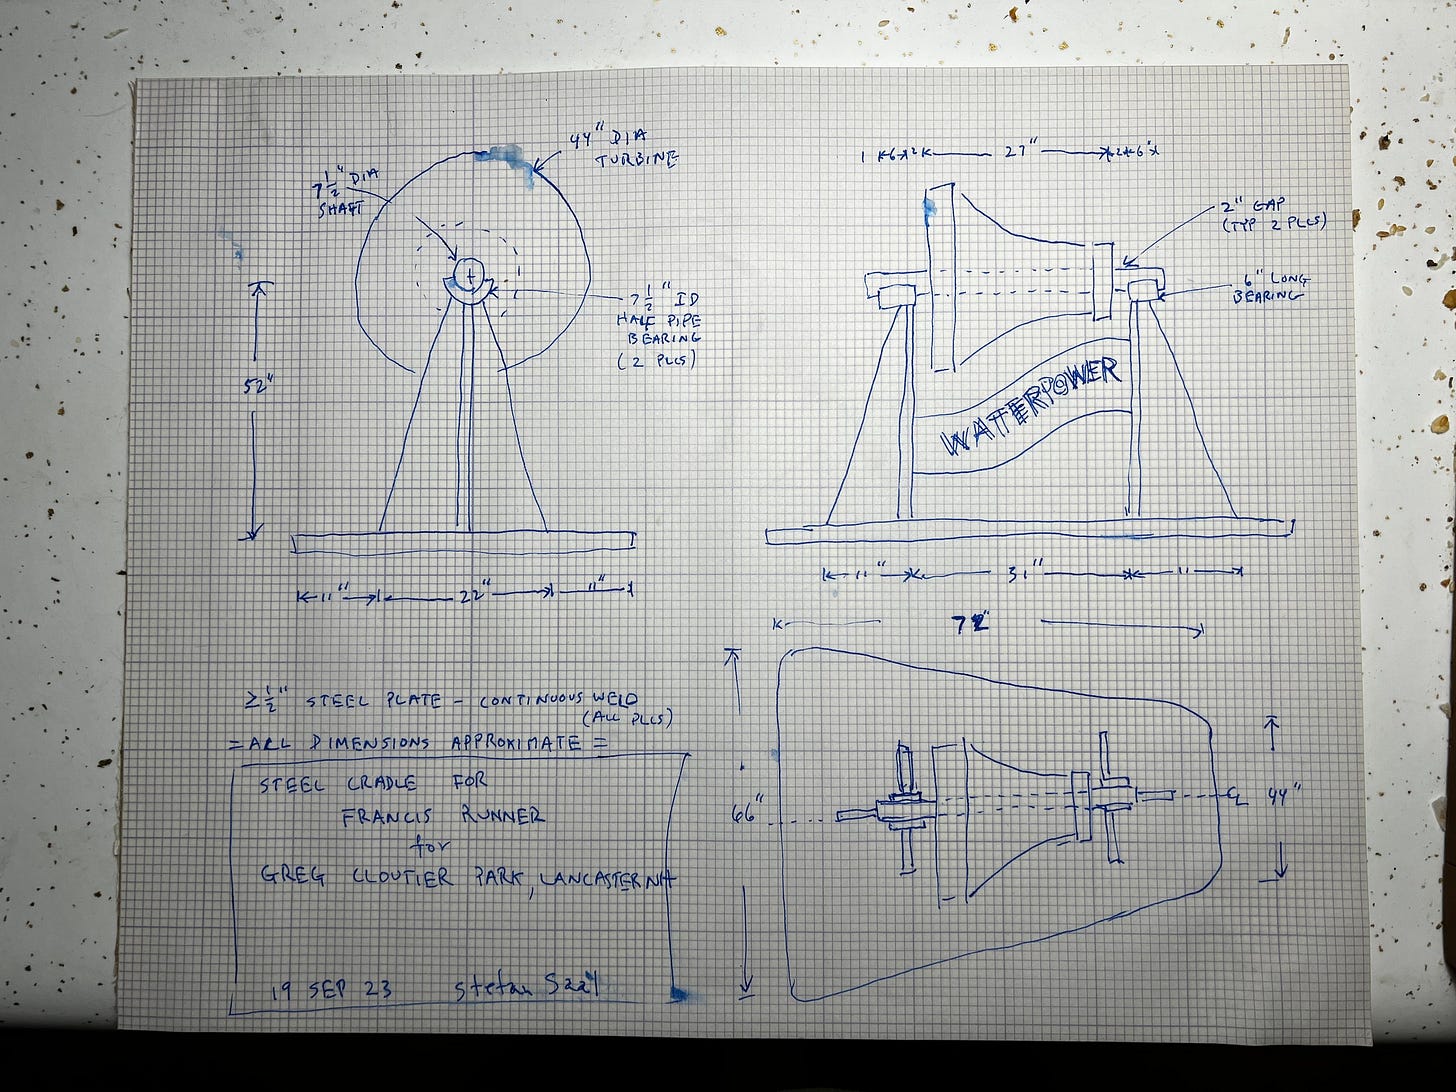 44" DIA
TURBINE
7 1/2" DIA
SHAFT
7 1/2" ID
HALF PIPE
BEARING
(2 PLCS)
52"
11" 22" 11"
6 2 27" 2 6"
2" GAP
(TYP 2 PLCS)
6" LONG
BEARING
WATERPOWER
11" 31" 11
72"
66"
℄ 44"
≥ 1/2" STEEL PLATE - CONTINUOUS WELD
(ALL PLCS)
= ALL DIMENSIONS APPROXIMATE =
STEEL CRADLE FOR
FRANCIS RUNNER
for
GREG CLOUTIER PARK, LANCASTER NH
19 SEP 23 Stefan